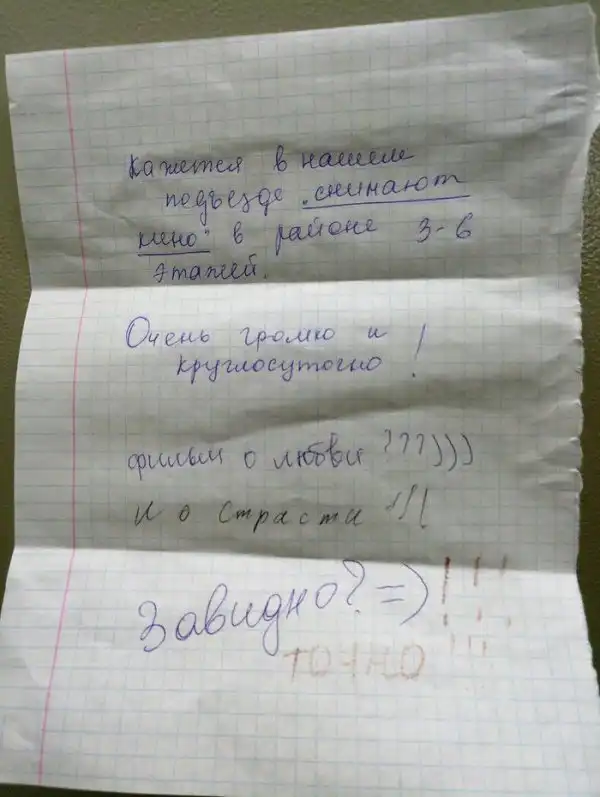 Кажется в нашем
подъезде "снимают
кино" в районе 3-6
этажей.
Очень громко и
круглосуточно !
фильм о любви ???)))
и о страсти !!!
Завидно? =) !!!
точно